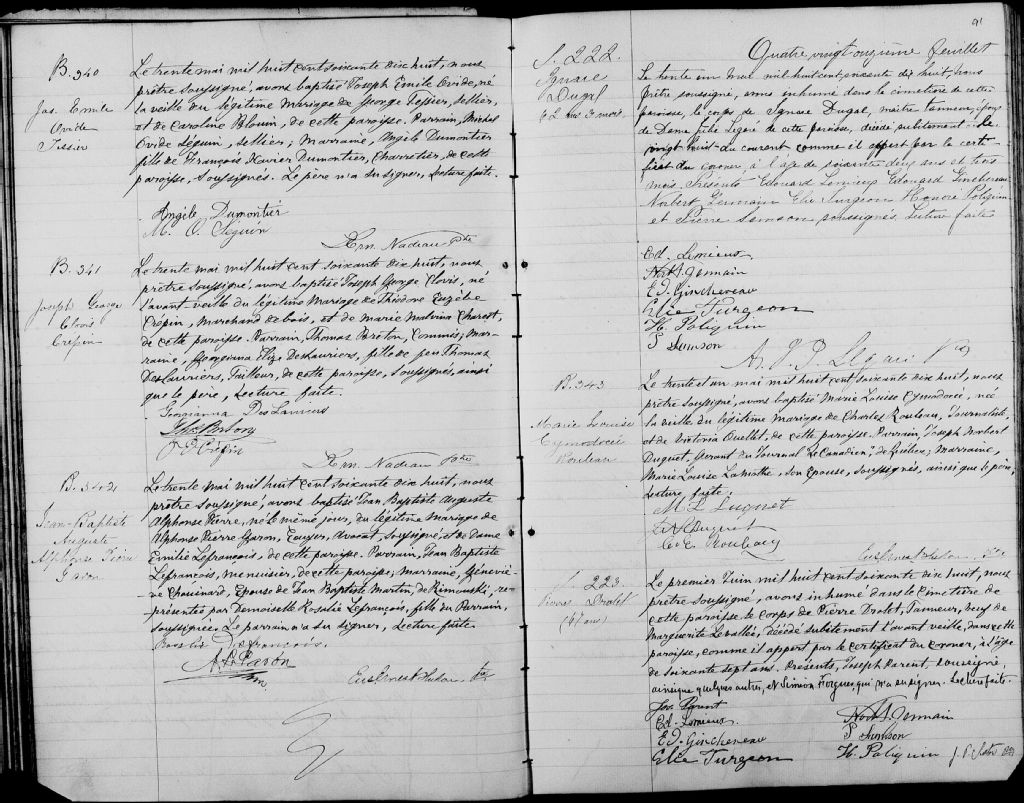 B. 340
Jos. Emile
Ovide
Tessier
Le trente mai mil huit cent soixante dix huit, nous
prêtre soussigné, avons baptisé Joseph Emile Ovide, né
la veille du légitime Mariage de George Tessier, sellier,
et de Caroline Blouin, de cette paroisse. Parrain, Michel
Ovide Séguin, sellier; Marraine, Angèle Dumontier
fille de François Xavier Dumontier, Charretier, de cette
paroisse, soussignés. Le père n'a su signer, Lecture faite.
Angèle Dumontier
M. O. Séguin
Ern. Nadeau Ptre
B. 341
Joseph George
Clovis
Crépin
Le trente mai mil huit cent soixante dix huit, nous
prêtre soussigné, avons baptisé Joseph George Clovis, né
l'avant veille du légitime Mariage de Théodore Eugène
Crépin, Marchand de bois, et de Marie Malvina Charest,
de cette paroisse. Parrain, Thomas Breton, Commis; Mar-
raine, Georgianna Eliza DesLauriers, fille de feu Thomas
DesLauriers, Tailleur, de cette paroisse, soussignés, ainsi
que le père, Lecture faite.
Georgianna DesLauriers
Crépin
Ern. Nadeau Ptre
B. 342
Jean-Baptiste
Auguste
Alphonse Pierre
Garon
Le trente mai mil huit cent soixante dix huit, nous
prêtre soussigné, avons baptisé Jean Baptiste Auguste
Alphonse Pierre, né le même jour, du légitime mariage de
Alphonse Pierre Garon, Ecuyer, Avocat, soussigné, et de Dame
Emilie Lefrançois, de cette paroisse. Parrain, Jean Baptiste
Lefrancois, menuisier, de cette paroisse; marraine, Geneviè-
ve Chouinard, Epouse de Jean Baptiste Martin, de Rimouski, re-
présentée par Demoiselle Rosalie Lefrançois, fille du Parrain,
soussignée. Le parrain n'a su signer, Lecture faite.
Rosalie Lefrançois.
A. P. Garon
Ptre
91
Quatre vingt-onzième feuillet
S. 222.
Ignace
Dugal
62 ans 3 mois.
Le trente un mai mil huit cent soixante dix huit, nous
prêtre soussigné, avons inhumé dans le cimetière de cette
paroisse, le corps de Ignace Dugal, maître tanneur, époux
de Dame Julie Légaré de cette paroisse, décédé subitement le
vingt huit du courant comme il appert par le certi-
ficat du coroner, à l'age de soixante deux ans et trois
mois. Présents Edouard Lemieux Edouard Gincheneau
Norbert Germain Elie Turgeon Honoré Poliquin
et Pierre Samson soussignés, lecture faite
Ed. Lemieux
Norb. Germain
E. J. Gincheneau
Elie Turgeon
H. Poliquin
P Samson
B. 343
Marie Louise
Cymodocée
Rouleau
Le trente et un mai mil huit cent soixante dix huit, nous
prêtre soussigné, avons baptisé Marie Louise Cymodocée, née
la veille du légitime mariage de Charles Rouleau, Journaliste,
et de Victoria Ouellet, de cette paroisse. Parrain, Joseph Norbert
Duquet, Gérant du Journal "Le Canadien," de Québec; Marraine,
Marie Louise Lamothe, son épouse, soussignés, ainsi que le père,
Lecture faite.
M. L. Duquet
J. N. Duquet
S. 223.
Pierre Drolet
(67 ans)
Le premier Juin mil huit cent soixante dix huit, nous
prêtre soussigné, avons inhumé dans le Cimetière de
cette paroisse, le corps de Pierre Drolet, Tanneur, Veuf de
Marguerite Levallée, décédé subitement l'avant veille, dans cette
paroisse, comme il appert par le certificat du coroner, à l'âge
de soixante sept ans. Présents, Joseph Parent soussigné,
ainsique quelques autres, et Siméon Forgues, qui n'a su signer. Lecture faite.
Jos Parent
Ed. Lemieux
E J. Gincheneau
Elie Turgeon
Norb. Germain
P Samson
H. Poliquin